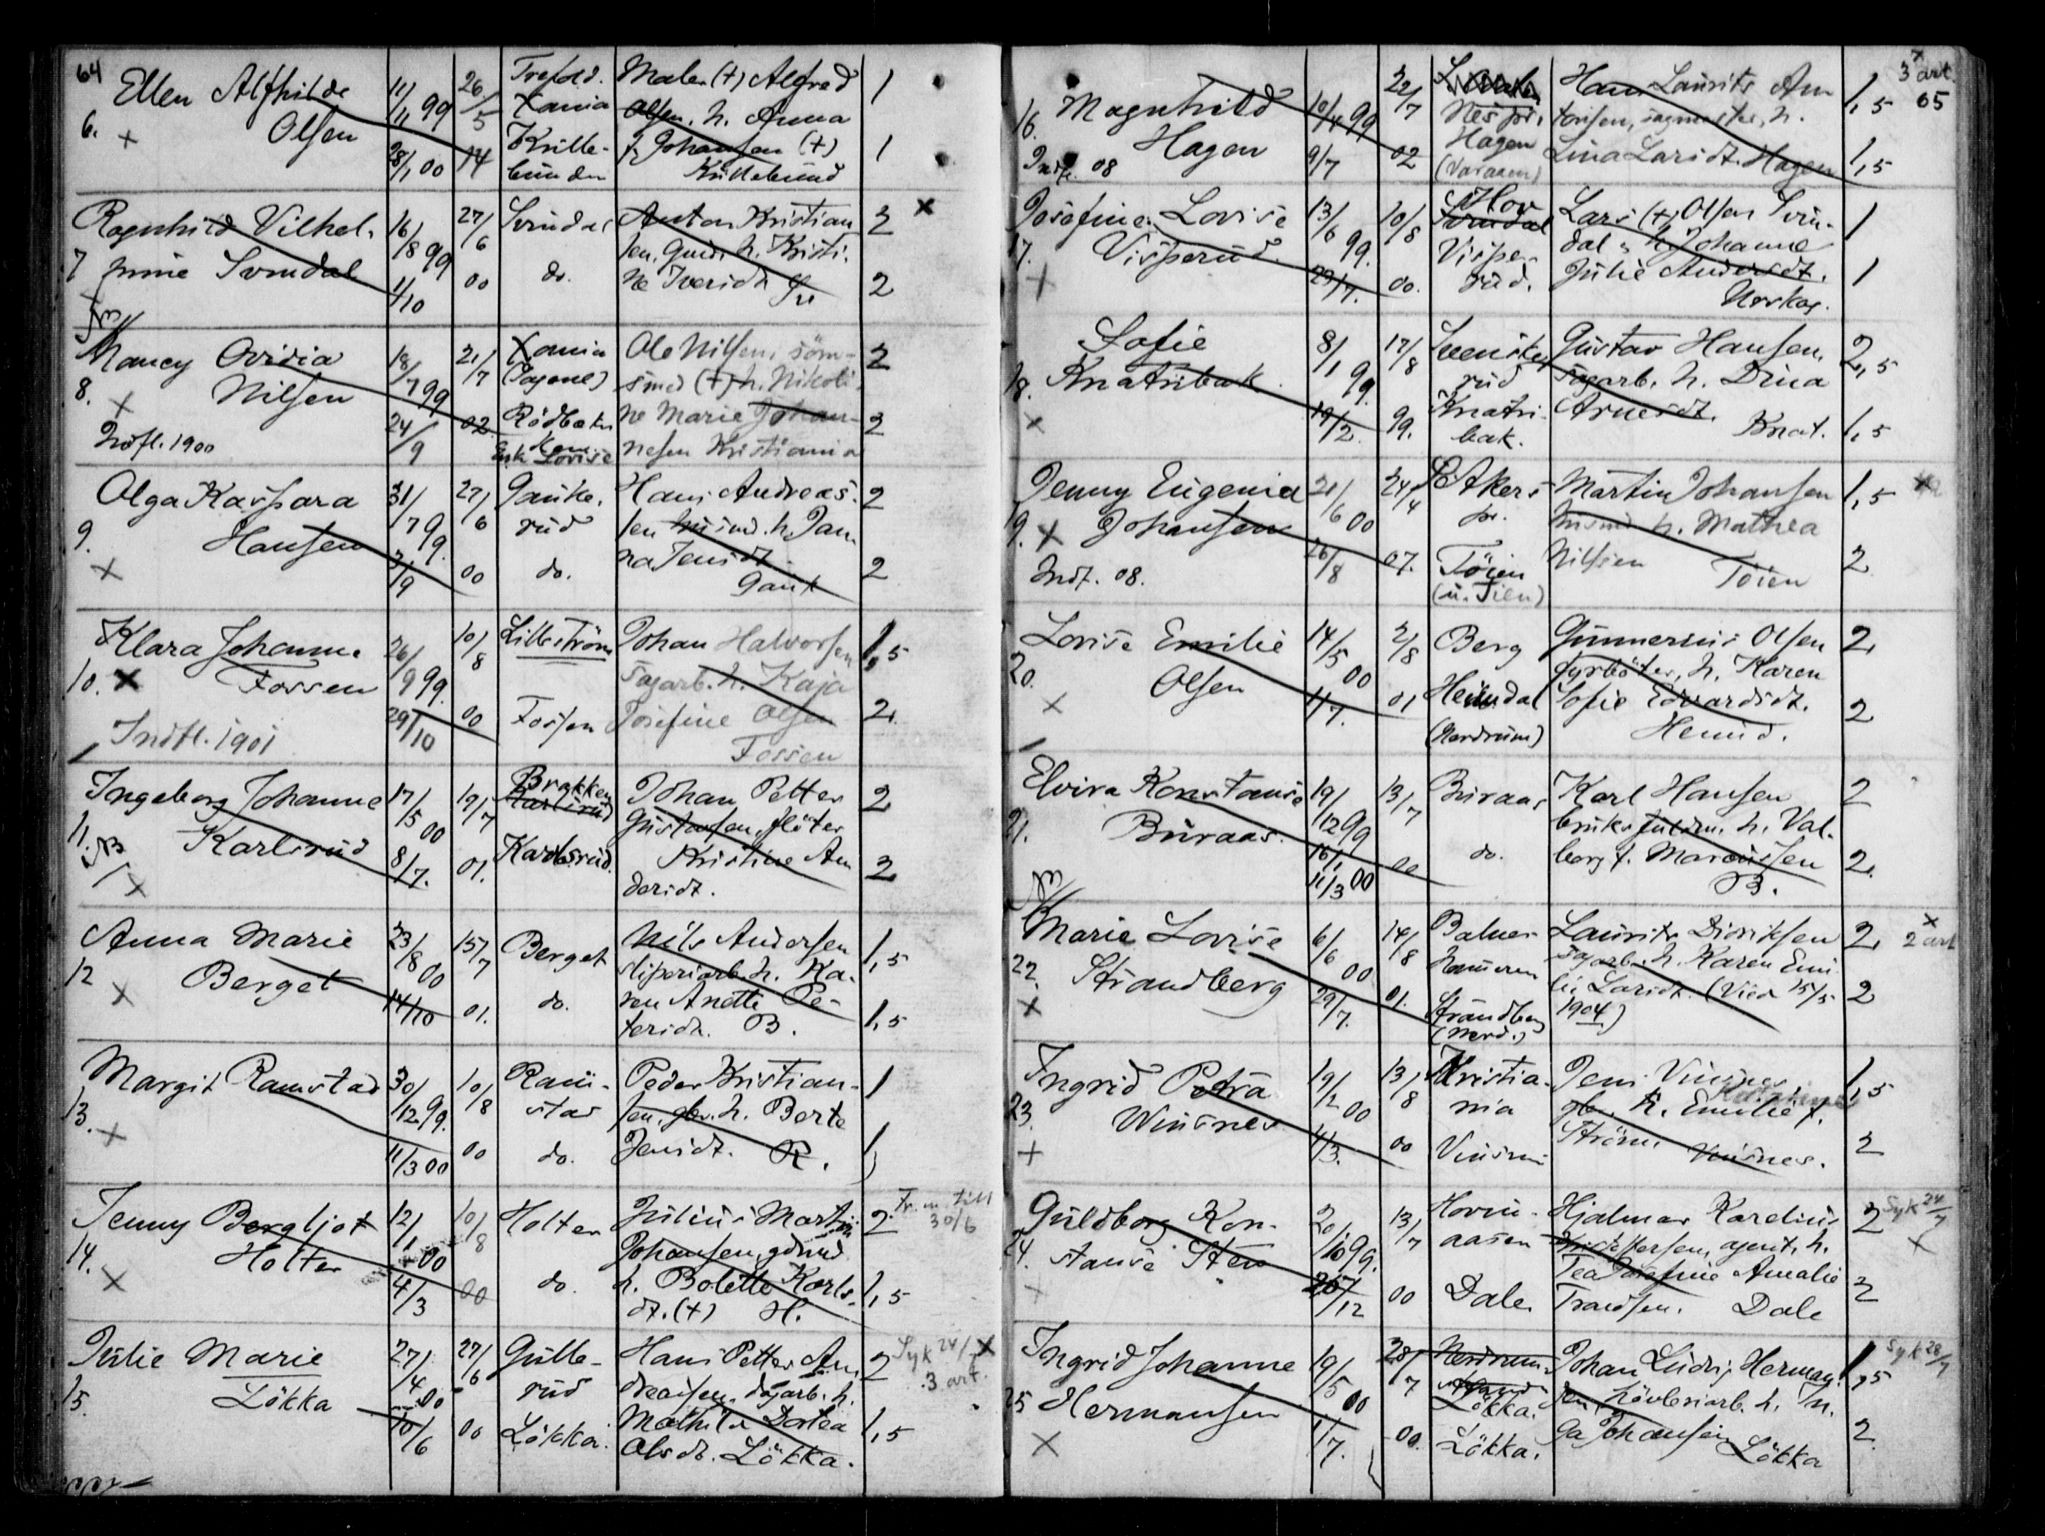 64
6. Ellen Alfhilde Olsen + 11/11 99 28/1 00 26/5 14 Trefold. Xania Krille- bunden
Maler (+) Alfred Olsen, h. Anna f. Johansen (+) Krillebund 1 1
7 Ragnhild Vilhel- mine Svindal 16/8 99 1/10 27/6 00 Svindal do.
Anton Kristian sen, h. Kristi- ne Iversdt. 2 2 x
8. Nancy Ovidia Nilsen x Indfl. 1900 18/7 99 24/9 21/7 02 Xania (Pagene) Rödbæk Lovise
Ole Nilsen, söm- smed (+) h. Nikoli- ne Marie Johan- nesen Kristiania 2 2
9. Olga Kaspara Hansen x 31/7 99. 3/9 27/6 00 Gauke- rud do.
Hans Andreas- sen h. Jan- na Jensdt. Gauk 2 2
10. Klara Johanne Fossen x Indfl. 1901 26/9 99. 29/10 10/8 00 Lilleström Fossen
Johan Halvorsen sagarb. h. Kaja Josefine Olsen Fossen 1,5 2.
11. Ingeborg Johanne Karlsrud x 17/5 00 8/7. 19/7 01. Brakken Karlsrud Karlsrud.
Johan Petter Gustavsen, flöter Kristine An dersdt. 2 2
12 Anna Marie Berget x 23/8 00 14/10 15/7 01. Berget do.
Nils Andersen sliperiarb. h. Ka- ren Anette Pe- tersdt. B. 1,5 1,5
13. Margit Ramstad + 30/12 99. 11/3 00 10/8 00 Ram- stad do.
Peder Kristian- sen, gbr. h. Berte Jensdt. R. 1 1
14. Jenny Bergljot Holter x 12/1 00 4/3 10/8 00 Holter do.
Julius Martin Johansen, gdmd h. Bolette Karls- dt. (+) H. 2 1,5 Fr. m. till 30/6
15. Julie Marie Lökka 27/4 00 10/6 27/6 00 Gulle- rud Lökka.
Hans Petter An- dreasen, dagarb. h. Mathilde Dortea Olsdt. Lökka. 2 1,5 Syk 24/7 x 3 art.
65
16. Magnhild Hagen Indfl. 08 10/4 99 9/7 22/7 02 Nes pr. Hagen (Varaaen)
Hans Laurits An tonsen, sagmester, h. Lina Larsdt. Hagen 1,5 1,5 x 3 art
17. Josefine Lovise Visperud. + 13/6 99. 29/7. 10/8 00. Hov Svindal Visper- rud.
Lars (+) Olsen Svin- dal, h. Johanne Julie Andersdt. Urskog. 1 1
18. Sofie Knatribak x 8/1 99. 19/2. 17/8 99. Svenske- rud Knatri- bak.
Gustav Hansen, sagarb. h. Dina Arnesdt. Knat. 2,5 1,5
19. Jenny Eugenia Johansen x Indf. 08. 21/6 00 26/8 24/4 07. Akers pr. Töien (u. Tien)
Martin Johansen h. Mathea Nilsen Töien 1,5 2 x
20. Lovise Emilie Olsen x 14/5 00 11/7. 2/8 01 Berg Heimdal (Nordrum)
Gunnerius Olsen fyrböter, h. Karen Sofie Edvardsdt. Heimd. 2 2
21. Elvira Konstanse Buraas. 19/12 99 16/1 11/3 00 13/7 00 Buraas do.
Karl Hansen bruksfuldm. h. Val- borg f. Marcussen B. 2 2.
22. Marie Lovise Strandberg x 6/6 00 29/7. 14/8 01. Balner- hameren Strandberg (Nerd.)
Laurits Didriksen sagarb. h. Karen Emi- lie Larsdt. (Vied 15/5 1904) 2. 2 x 2 art
23. Ingrid Petra Winsnes + 19/2 00 4/3. 13/8 00 Kristia- nia Vinsnes
Jens Vinsnes gbr. h. Emilie f. Ström. Vinsnes. 1,5 2
24. Guldborg Kon- stanse Sten 20/10 99. 26/12 13/7 00 Hovin- aasen Dale.
Hjalmar Karelius Kristoffersen, agent, h. Tea Josefine Amalie Trandsen. Dale 2 2 Syk 24/7 x
25 Ingrid Johanne Hermansen x 19/5 00 1/7. 28/7 00. Nerdrum Lökka. Lökka.
Johan Ludv. Herman- sen, hövleriarb. h. In- ga Johansen Lökka 1,5 2. Syk 28/7